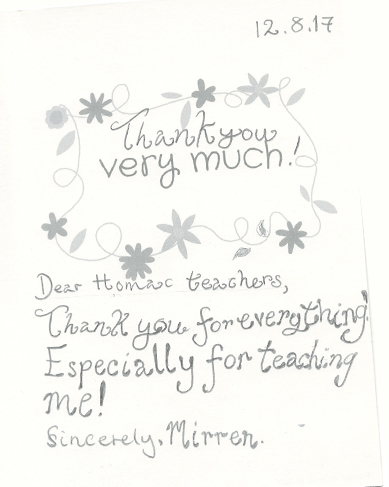 12.8.17
Thank you
very much!
Dear Homac teachers,
Thank you for everything!
Especially for teaching
me!
Sincerely, Mirren.